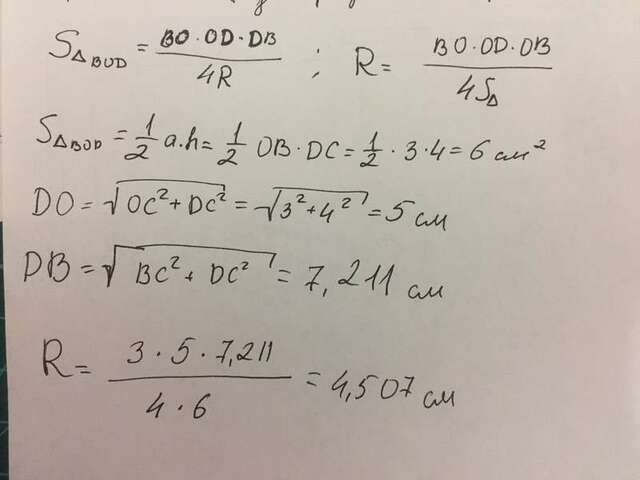 S△BOD = BO·OD·DB / 4R ; R = BO·OD·OB / 4S△
S△BOD = 1/2 a·h = 1/2 OB·DC = 1/2 · 3·4 = 6 см²
DO = √OC²+DC² = √3²+4² = 5 см
DB = √BC²+DC² = 7,211 см
R = 3·5·7,211 / 4·6 = 4,507 см